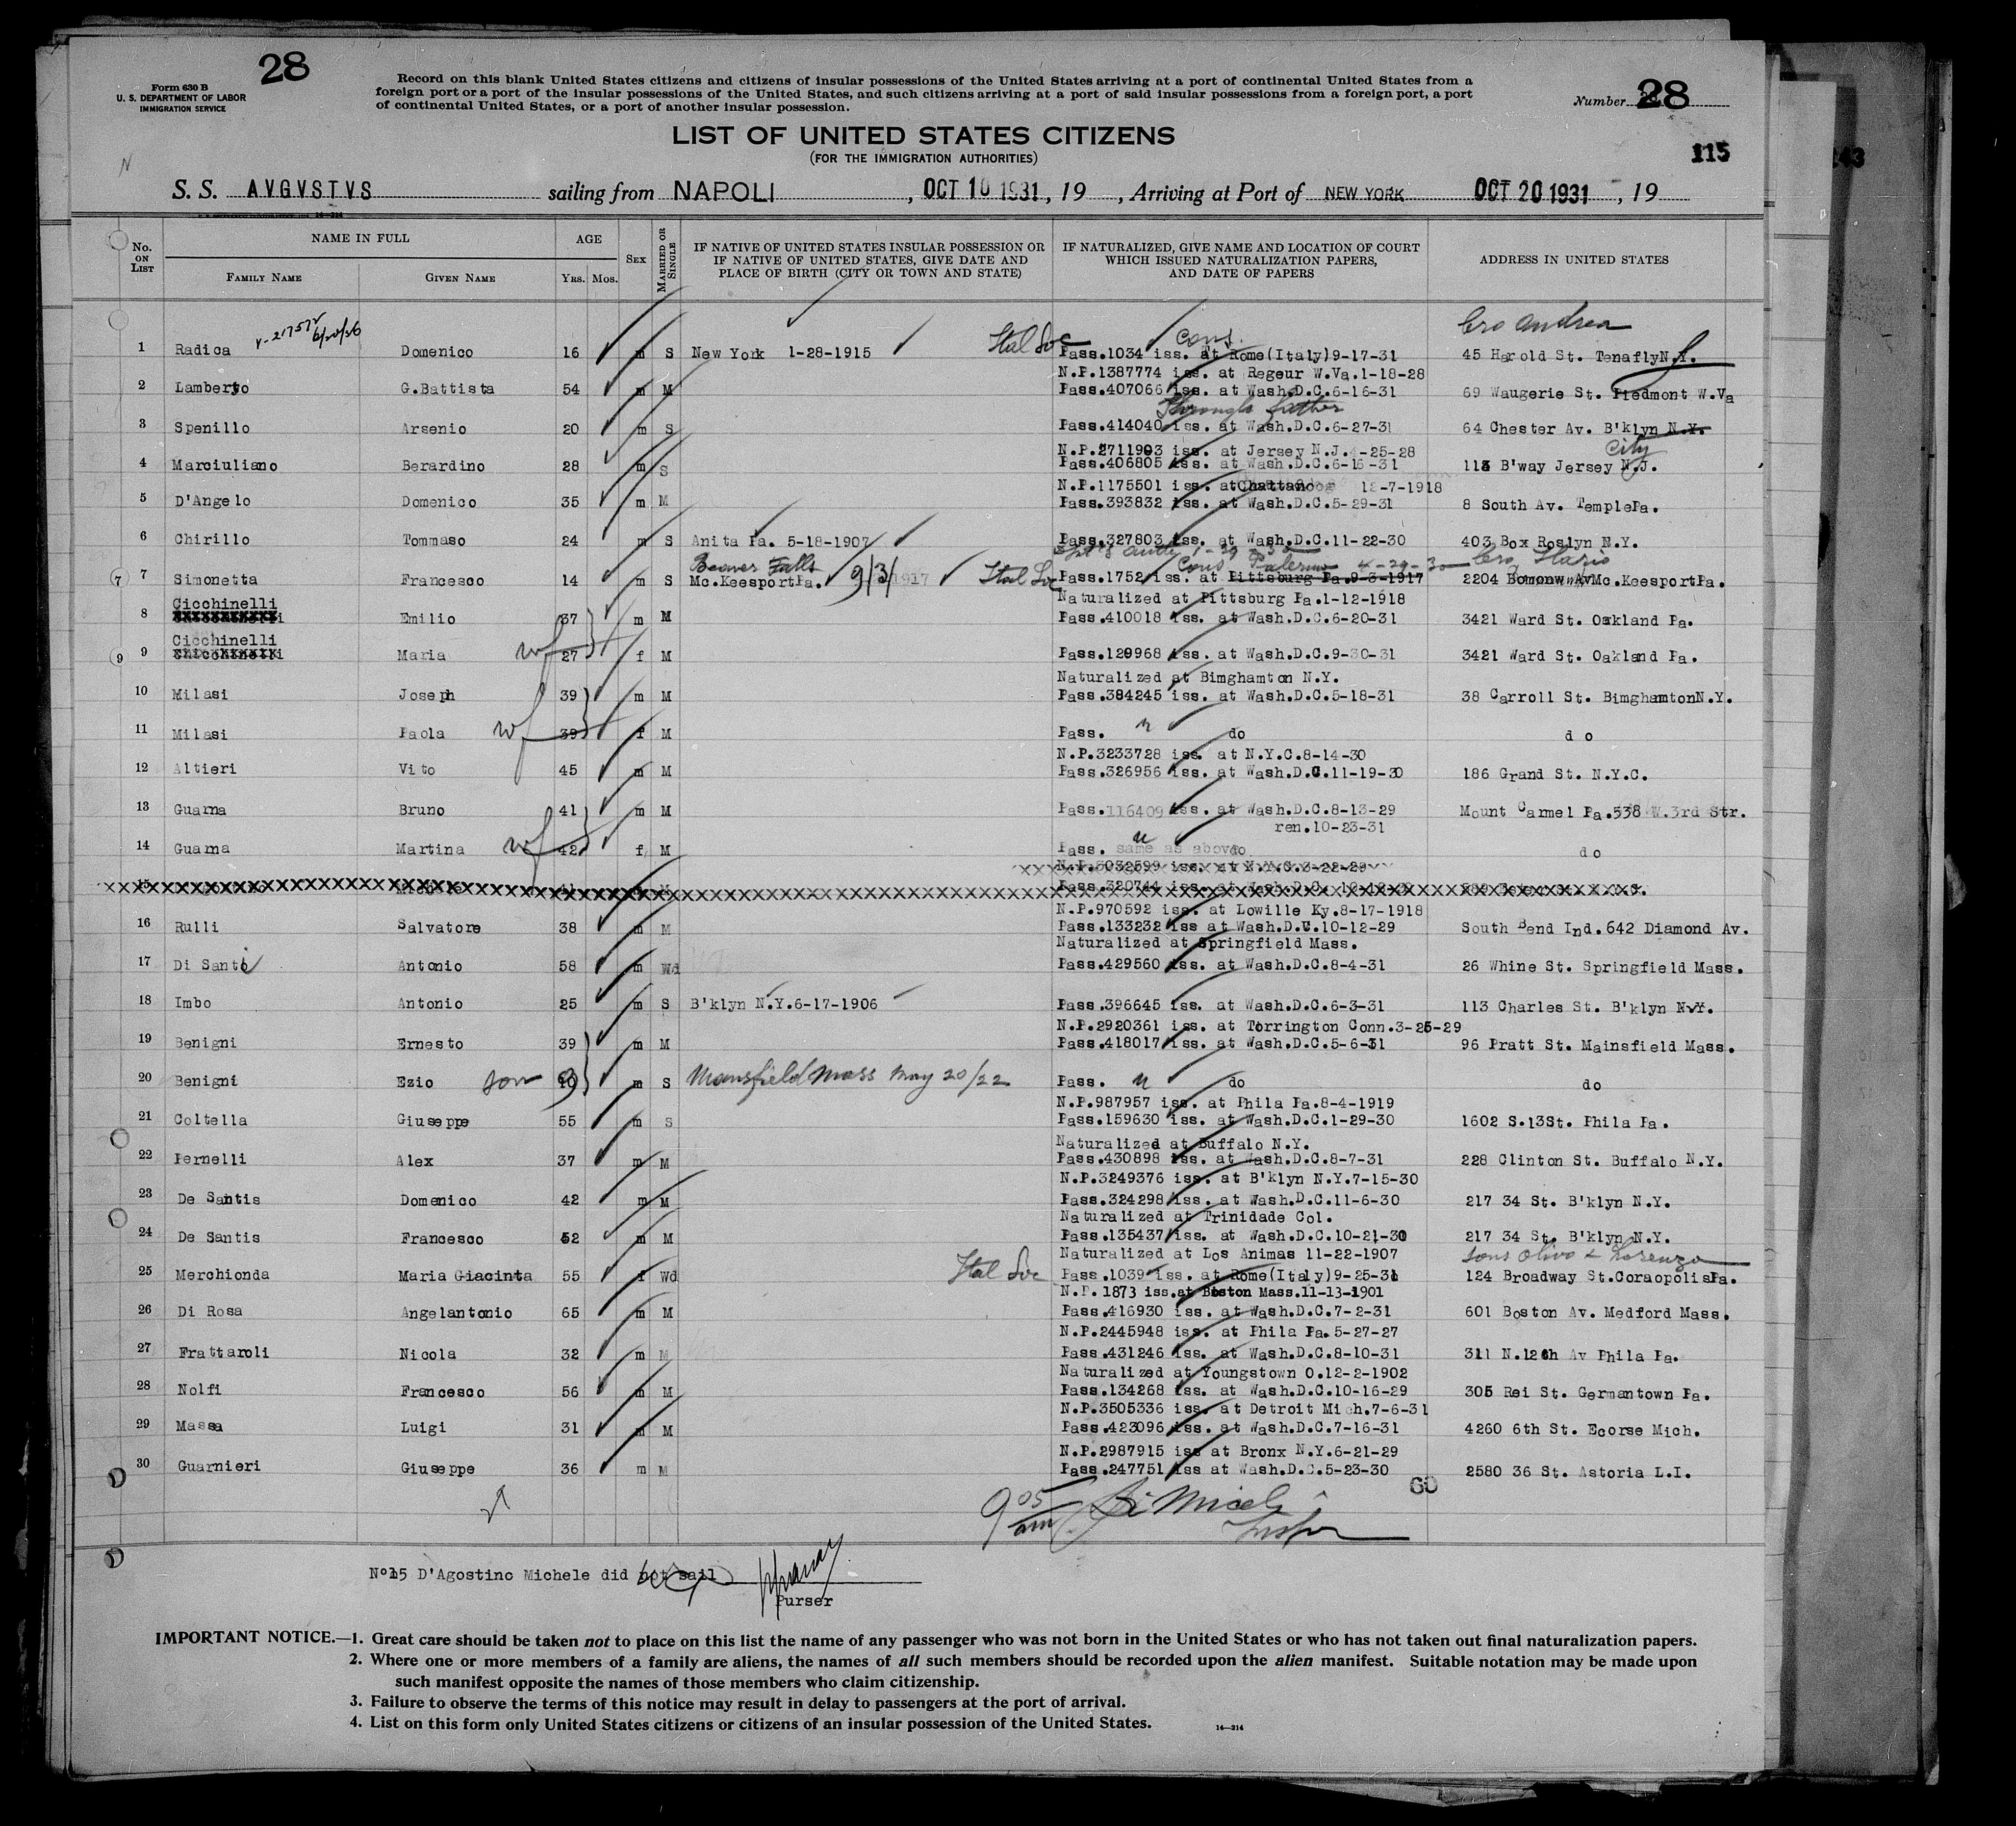 28
Form 630 B
U. S. DEPARTMENT OF LABOR
IMMIGRATION SERVICE
Record on this blank United States citizens and citizens of insular possessions of the United States arriving at a port of continental United States from a
foreign port or a port of the insular possessions of the United States, and such citizens arriving at a port of said insular possessions from a foreign port, a port
of continental United States, or a port of another insular possession.
Number 28
LIST OF UNITED STATES CITIZENS
(FOR THE IMMIGRATION AUTHORITIES)
115
S. S. AVGVSTVS sailing from NAPOLI, OCT 10 1931, 19 , Arriving at Port of NEW YORK OCT 20 1931, 19
No. ON LIST
NAME IN FULL
FAMILY NAME
GIVEN NAME
AGE
YRS. MOS.
SEX
MARRIED OR SINGLE
IF NATIVE OF UNITED STATES INSULAR POSSESSION OR
IF NATIVE OF UNITED STATES, GIVE DATE AND
PLACE OF BIRTH (CITY OR TOWN AND STATE)
IF NATURALIZED, GIVE NAME AND LOCATION OF COURT
WHICH ISSUED NATURALIZATION PAPERS,
AND DATE OF PAPERS
ADDRESS IN UNITED STATES
Cons. Bro Andrea
1 Radica Domenico 16 m S New York 1-28-1915 Pass.1034 iss. at Rome(Italy)9-17-31 45 Harold St. TenaflyN.Y.
N.P.1387774 iss. at Regeur W.Va.1-18-28
2 Lamberto G.Battista 54 m M Pass.407066 iss. at Wash.D.C.6-16-31 69 Waugerie St. Piedmont W.Va
Through father
3 Spenillo Arsenio 20 m S Pass.414040 iss. at Wash.D.C.6-27-31 64 Chester Av. B'klyn N.Y.
N.P.2711903 iss. at Jersey N.J.4-25-28 City
4 Marciuliano Berardino 28 m S Pass.406805 iss. at Wash.D.C.6-16-31 113 B'way Jersey N.J.
N.P.1175501 iss. at Chattanoog 12-7-1918
5 D'Angelo Domenico 35 m M Pass.393832 iss. at Wash.D.C.5-29-31 8 South Av. TemplePa.
6 Chirillo Tommaso 24 m S Anita Pa. 5-18-1907 Pass.327803 iss. at Wash.D.C.11-22-30 403 Box Roslyn N.Y.
Beaver Falls Cons Palermo 4-29-30 Bro Ilario
7 7 Simonetta Francesco 14 m S Mc.KeesportPa. 9/3/1917 Pass.1752 iss. at Pittsburg Pa.9-3-1917 2204 Bomonw AvMc.KeesportPa.
Cicchinelli Naturalized at Pittsburg Pa.1-12-1918
8 Emilio 37 m M Pass.410018 iss. at Wash.D.C.6-20-31 3421 Ward St. Oakland Pa.
Cicchinelli
9 9 Maria wf 27 f M Pass.129968 iss. at Wash.D.C.9-30-31 3421 Ward St. Oakland Pa.
Naturalized at Bimghamton N.Y.
10 Milasi Joseph 39 m M Pass.384245 iss. at Wash.D.C.5-18-31 38 Carroll St. BimghamtonN.Y.
11 Milasi Paola wf 39 f M Pass. " do do
N.P.3233728 iss. at N.Y.C.8-14-30
12 Altieri Vito 45 m M Pass.326956 iss. at Wash.D.C.11-19-30 186 Grand St. N.Y.C.
13 Guarna Bruno 41 m M Pass.116409 iss. at Wash.D.C.8-13-29 Mount Carmel Pa.538 W.3rd Str.
ren.10-23-31
14 Guarna Martina wf 42 f M Pass. same as above do do
N.P.3032599 iss. at N.Y.C.3-22-29
15
N.P.970592 iss. at Lowille Ky.8-17-1918
16 Rulli Salvatore 38 m M Pass.133232 iss at Wash.D.C.10-12-29 South Bend Ind.642 Diamond Av.
Naturalized at Springfield Mass.
17 Di Santo Antonio 58 m Wd Pass.429560 iss. at Wash.D.C.8-4-31 26 Whine St. Springfield Mass.
18 Imbo Antonio 25 m S B'klyn N.Y.6-17-1906 Pass.396645 iss. at Wash.D.C.6-3-31 113 Charles St. B'klyn N.Y.
N.P.2920361 iss. at Torrington Conn.3-25-29
19 Benigni Ernesto 39 m M Pass.418017 iss. at Wash.D.C.5-6-31 96 Pratt St. Mainsfield Mass.
20 Benigni Ezio son 9 m S Mansfield Mass May 20/22 Pass. " do do
N.P.987957 iss. at Phila Pa.8-4-1919
21 Coltella Giuseppe 55 m S Pass.159630 iss. at Wash.D.C.1-29-30 1602 S.13St. Phila Pa.
Naturalized at Buffalo N.Y.
22 Pernelli Alex 37 m M Pass.430898 iss. at Wash.D.C.8-7-31 228 Clinton St. Buffalo N.Y.
N.P.3249376 iss. at B'klyn N.Y.7-15-30
23 De Santis Domenico 42 m M Pass.324298 iss. at Wash.D.C.11-6-30 217 34 St. B'klyn N.Y.
Naturalized at Trinidade Col.
24 De Santis Francesco 52 m M Pass.135437 iss. at Wash.D.C.10-21-30 217 34 St. B'klyn N.Y.
Naturalized at Los Animas 11-22-1907 sons Olivo & Lorenzo
25 Merchionda Maria Giacinta 55 f Wd Pass.1039 iss. at Rome(Italy)9-25-31 124 Broadway St.CoraopolisPa.
N.P. 1873 iss.at Boston Mass.11-13-1901
26 Di Rosa Angelantonio 65 m M Pass.416930 iss. at Wash.D.C.7-2-31 601 Boston Av. Medford Mass.
N.P.2445948 iss. at Phila Pa.5-27-27
27 Frattaroli Nicola 32 m M Pass.431246 iss. at Wash.D.C.8-10-31 311 N.12th Av Phila Pa.
Naturalized at Youngstown O.12-2-1902
28 Nolfi Francesco 56 m M Pass.134268 iss. at Wash.D.C.10-16-29 305 Rei St. Germantown Pa.
N.P.3505336 iss. at Detroit Mich.7-6-31
29 Massa Luigi 31 m M Pass.423096 iss. at Wash.D.C.7-16-31 4260 6th St. Ecorse Mich.
N.P.2987915 iss at Bronx N.Y.6-21-29
30 Guarnieri Giuseppe 36 m M Pass.247751 iss at Wash.D.C.5-23-30 2580 36 St. Astoria L.I.
60
9 05 am
No15 D'Agostino Michele did not sail
Purser
IMPORTANT NOTICE.—1. Great care should be taken not to place on this list the name of any passenger who was not born in the United States or who has not taken out final naturalization papers.
2. Where one or more members of a family are aliens, the names of all such members should be recorded upon the alien manifest. Suitable notation may be made upon
such manifest opposite the names of those members who claim citizenship.
3. Failure to observe the terms of this notice may result in delay to passengers at the port of arrival.
4. List on this form only United States citizens or citizens of an insular possession of the United States.
14—214